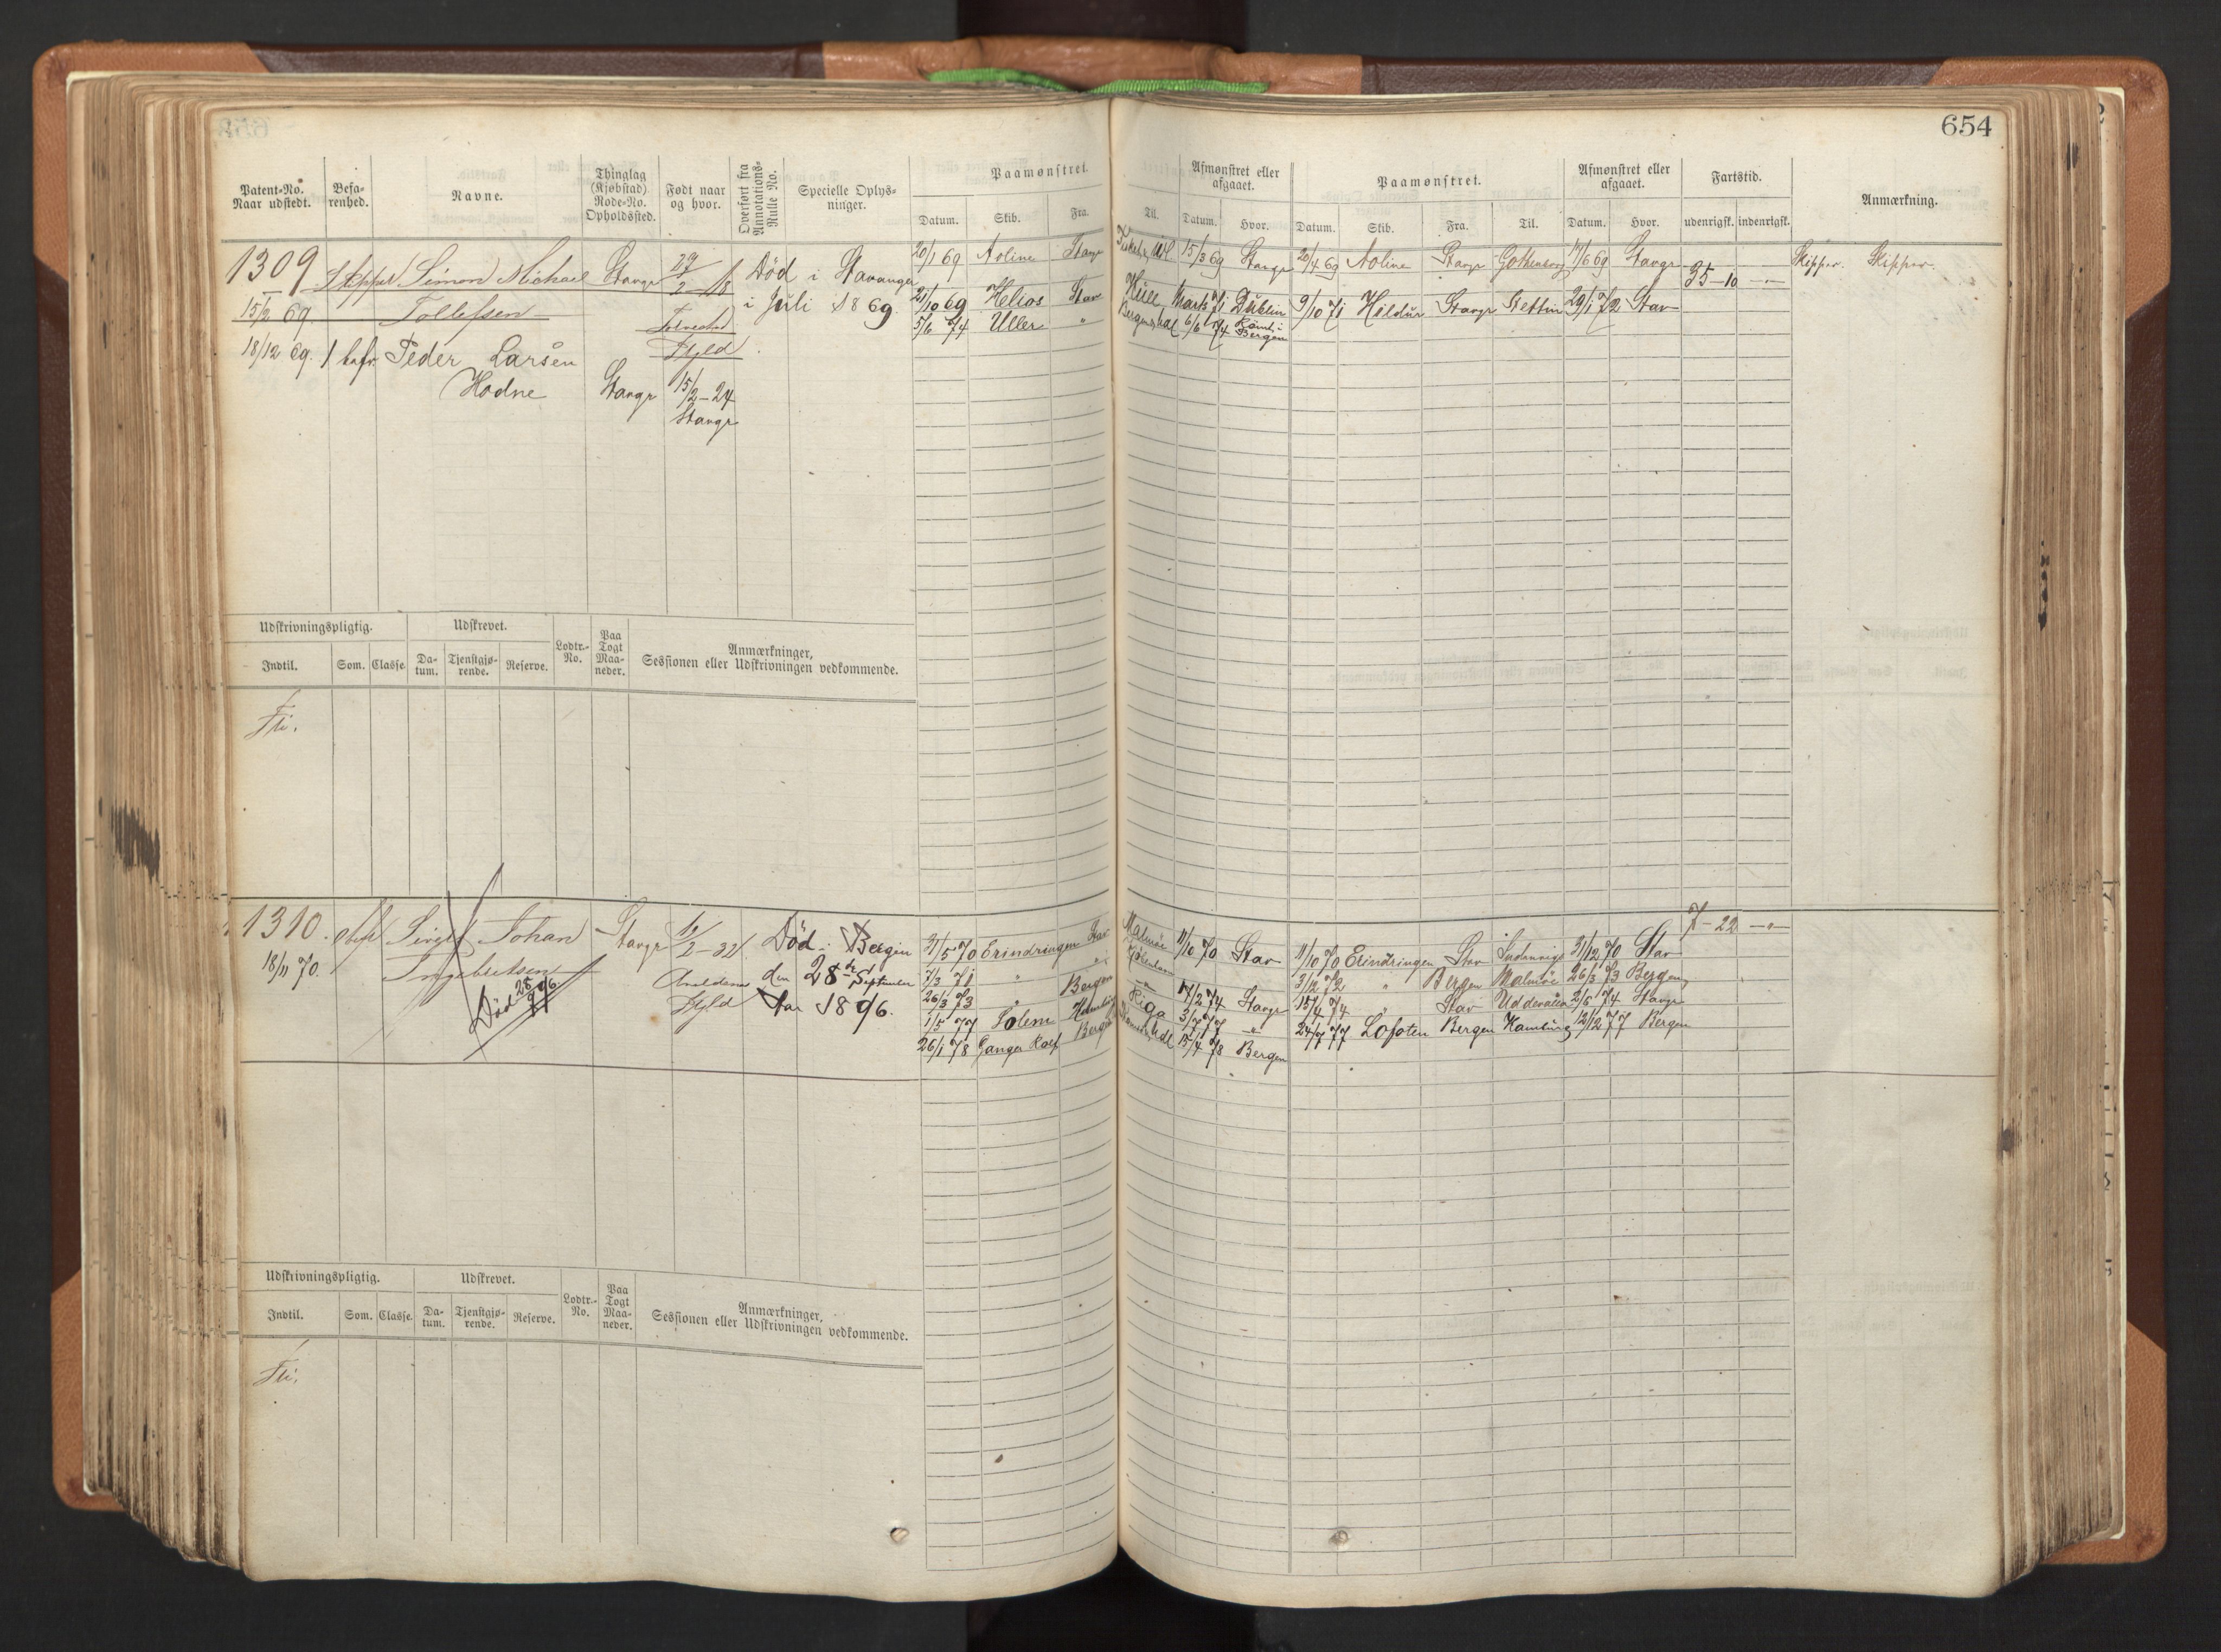 654
Patent-No. Naar udstedt.
Befarenhed.
Navne.
Thinglag (Kjøbstad) Rode-No. Opholdssted.
Født naar og hvor.
Overført fra Annotations-Rulle No.
Specielle Oplysninger.
Paamønstret.
Datum. Skib. Fra. Til.
Afmønstret eller afgaaet.
Datum. Hvor.
Paamønstret.
Datum. Skib. Fra. Til.
Afmønstret eller afgaaet.
Datum. Hvor.
Fartstid.
udenrigsk. indenrigsk.
Anmærkning.
1309 Simon Michael Stavgr 2-18 Død i Stavanger 20/1 69 Aoline Stavgr 15/3 69 Stavgr 20/4 69 Aoline Stavgr Gothenborg 17/6 69 Stavgr Skipper. Skipper.
15/2 69 Tollefsen i Juli 1869. 21/10 69 Helios Stav Hull Marts 71 Dublin 9/10 71 Hildur Stavgr Stettin 29/1 72 Stav 35-10 -"-
Fyld 5/6 74 Uller " 6/6 74 Bergen
18/12 69. 1 Peder Larsen
Hodne Stavgr 15/2-24
Stavgr
Udskrivningspligtig. Udskrevet. Lodtr.-No. Paa Togt Maaneder. Anmærkninger, Sessionen eller Udskrivningen vedkommende.
Indtil. Som. Classe. Datum. Tjenstgjørende. Reserve.
Fri.
1310. Johan Stavgr Død i Bergen 5 70 Erindringen Stav Malmöe 11/10 70 Stav 11/10 70 Erindringen Stav 12 70 Stav 7-22 -"-
18/11 70. Ingebretsen den 28de September 7/3 71 " " 3/12 72 " Bergen Malmöe 26/3 73 Bergen
Død 28/9 96 Fyld 1896. 26/3 73 " Bergen 2 74 Stavgr 4 74 " Stav Uddevalla 2/5 74 Stavgr
1/5 77 Solem Riga 3/7 77 " 24/7 77 Lofoten Bergen Hamburg 12/12 77 Bergen
26/1 78 Ganger Rolf Bergen 15/4 78 Bergen
Udskrivningspligtig. Udskrevet. Lodtr.-No. Paa Togt Maaneder. Anmærkninger, Sessionen eller Udskrivningen vedkommende.
Indtil. Som. Classe. Datum. Tjenstgjørende. Reserve.
Fri.